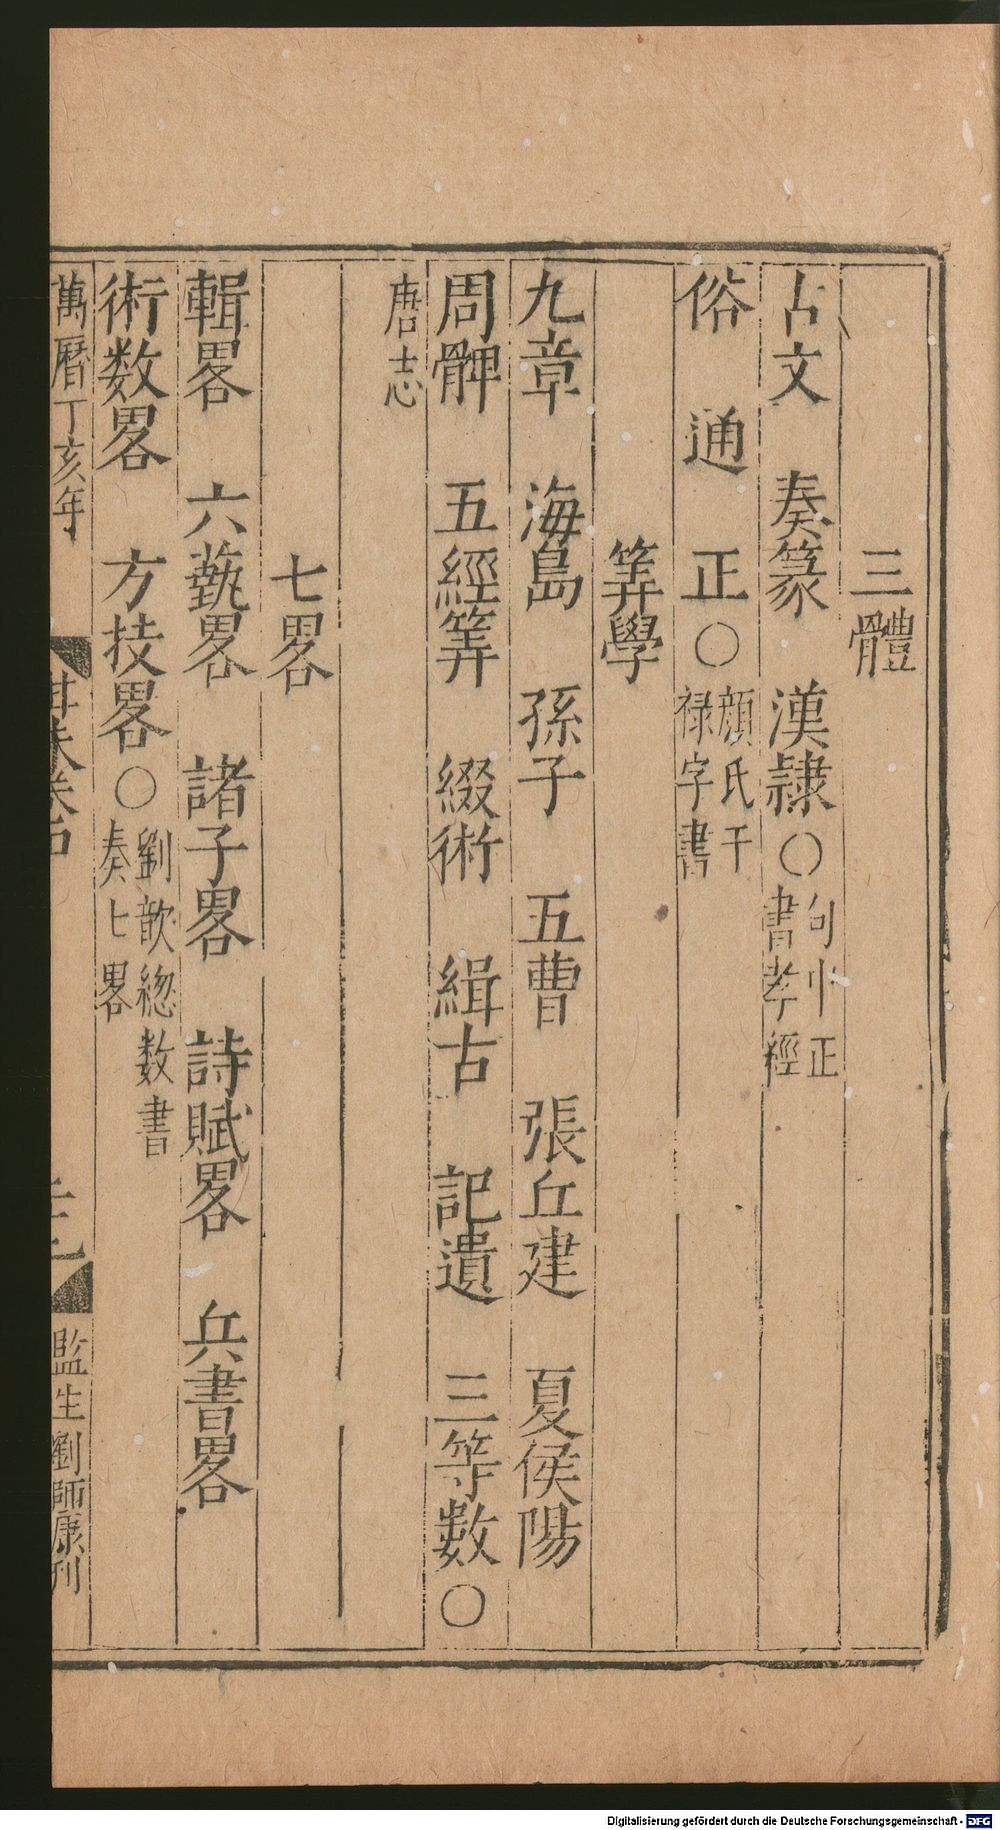 三體
古文　奏篆　漢隸○句中正書孝經
俗　通　正○顔氏干禄字書
筭學
九章　海島　孫子　五曹　張丘建　夏侯陽
周髀　五經筭　綴術　緝古　記遺　三等数○
唐志
七畧
輯畧　六藝畧　諸子畧　詩賦畧　兵書畧
術数畧　方技畧○劉歆緫数書奏七畧
萬曆丁亥年
監生劉師康刊
Digitalisierung gefördert durch die Deutsche Forschungsgemeinschaft - DFG